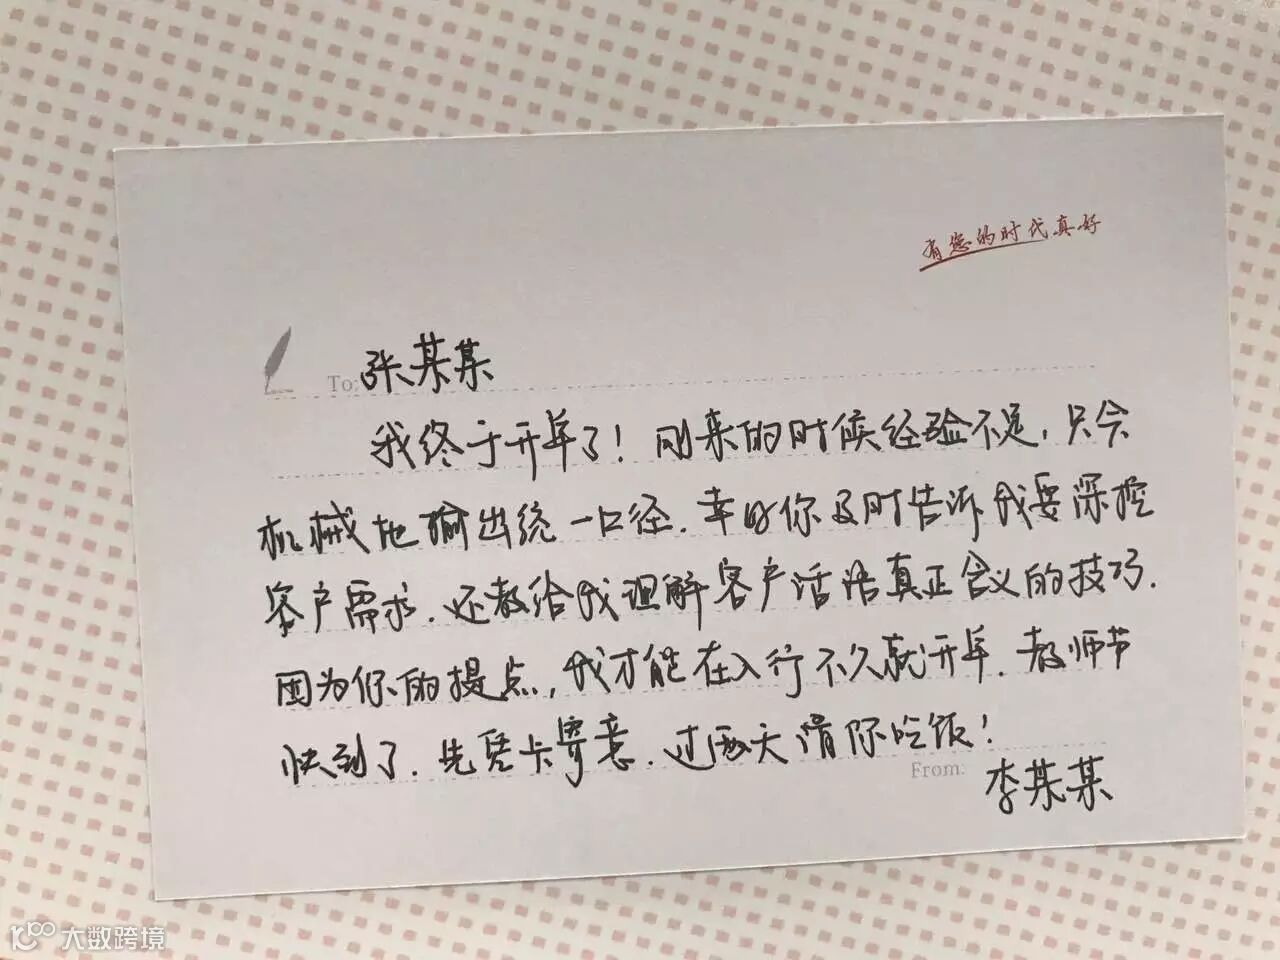 有您的时代真好
To: 张某某
我终于开单了！刚来的时候经验不足，只会
机械地输出统一口径．幸好你及时告诉我要深挖
客户需求．还教给我理解客户话语真正含义的技巧．
因为你的提点，我才能在入行不久就开单．教师节
快到了．先凭卡寄意．过两天请你吃饭！
From: 李某某
大数跨境